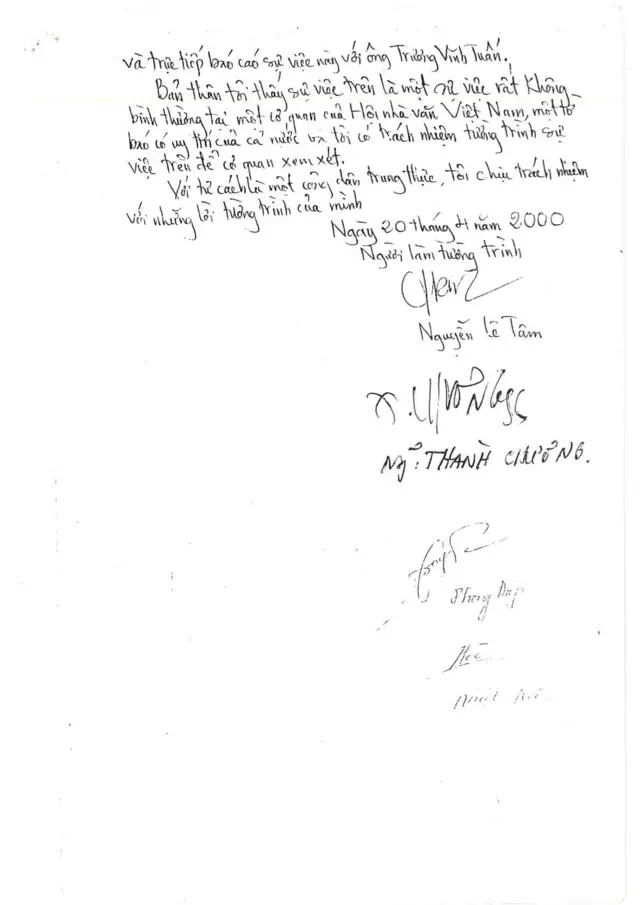 và trực tiếp báo cáo sự việc này với ông Trương Vĩnh Tuấn.
Bản thân tôi thấy sự việc trên là một sự việc rất không
bình thường tại một cơ quan của Hội nhà văn Việt Nam, một tờ
báo có uy tín của cả nước và tôi có trách nhiệm tường trình sự
việc trên để cơ quan xem xét.
Với tư cách là một công dân trung thực, tôi chịu trách nhiệm
với những lời tường trình của mình
Ngày 20 tháng 4 năm 2000
Người làm tường trình
Nguyễn Lê Tâm
Ng~: THÀNH CHƯƠNG.